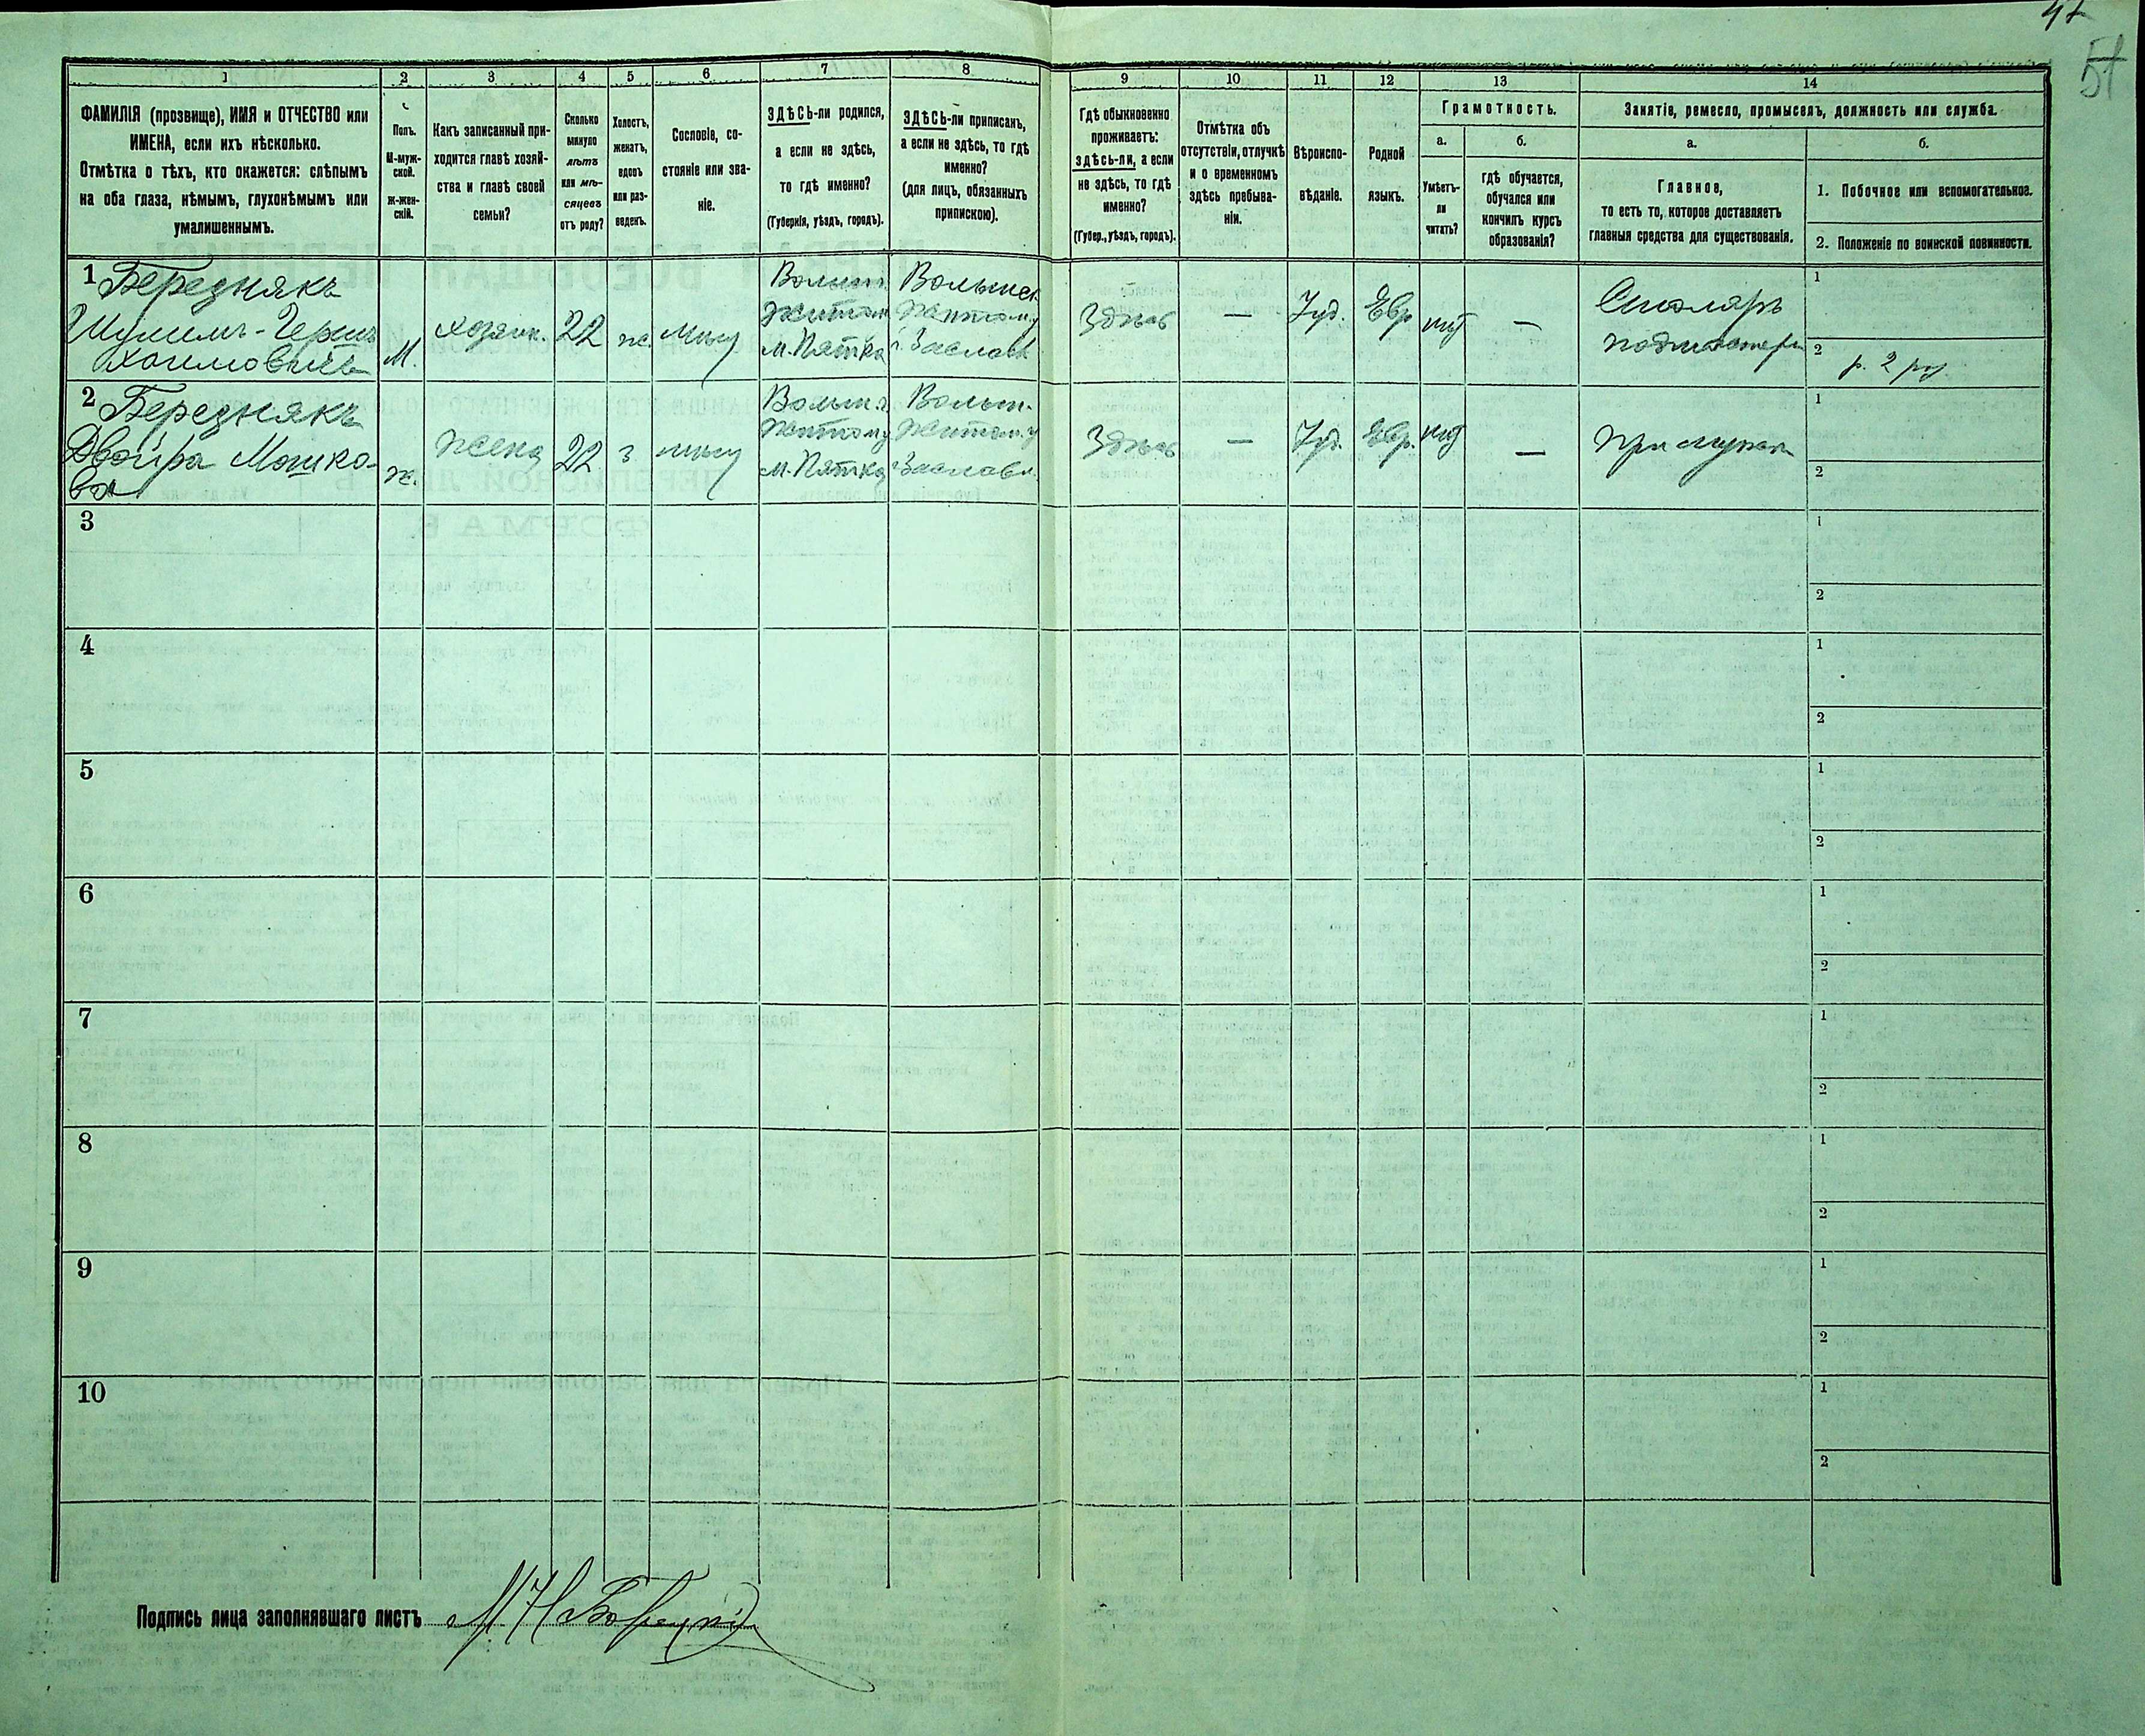 51
1
2
3
4
5
6
7
8
9
10
11
12
13
14
ФАМИЛІЯ (прозвище), ИМЯ и ОТЧЕСТВО или
ИМЕНА, если ихъ нѣсколько.
Отмѣтка о тѣхъ, кто окажется: слѣпымъ
на оба глаза, нѣмымъ, глухонѣмымъ или
умалишеннымъ.
Полъ.
М-муж-
ской.
Ж-жен-
скій.
Какъ записанный при-
ходится главѣ хозяй-
ства и главѣ своей
семьи?
Сколько
минуло
лѣтъ
или мѣ-
сяцевъ
отъ роду?
Холостъ,
женатъ,
вдовъ
или раз-
веденъ.
Сословіе, со-
стояніе или зва-
ніе.
ЗДѢСЬ-ли родился,
а если не здѣсь,
то гдѣ именно?
(Губернія, уѣздъ, городъ).
ЗДѢСЬ-ли приписанъ,
а если не здѣсь, то гдѣ
именно?
(для лицъ, обязанныхъ
припискою).
Гдѣ обыкновенно
проживаетъ:
здѣсь-ли, а если
не здѣсь, то гдѣ
именно?
(Губер., уѣздъ, городъ).
Отмѣтка объ
отсутствіи, отлучкѣ
и о временномъ
здѣсь пребыва-
ніи.
Вѣроиспо-
вѣданіе.
Родной
языкъ.
Грамотность.
а.
б.
Умѣетъ-
ли
читать?
гдѣ обучается,
обучался или
кончилъ курсъ
образованія?
Занятіе, ремесло, промыселъ, должность или служба.
а.
б.
Главное,
то есть то, которое доставляетъ
главныя средства для существованія.
1. Побочное или вспомогательное.
2. Положеніе по воинской повинности.
1 Береднякъ
Шулимъ-Гершъ
Хаимовичъ
М.
хозяин.
22
ж.
Волын.
Житом
м. Пятка
Волынск
Житом.у
Заславъ
Здѣсь
—
Іуд.
Евр
нѣт
—
Столяръ
подмастерь
1
2
р. 2 раз
2 Береднякъ
Двойра Мошко-
ва
ж.
жена
22
з
Волын.г
Житом.у
м. Пятка
Волын.
Житом.у
Заслав.
Здѣсь
—
Іуд.
Евр.
нѣт
—
При мужѣ
1
2
3
1
2
4
1
2
5
1
2
6
1
2
7
1
2
8
1
2
9
1
2
10
1
2
Подпись лица заполнявшаго листъ